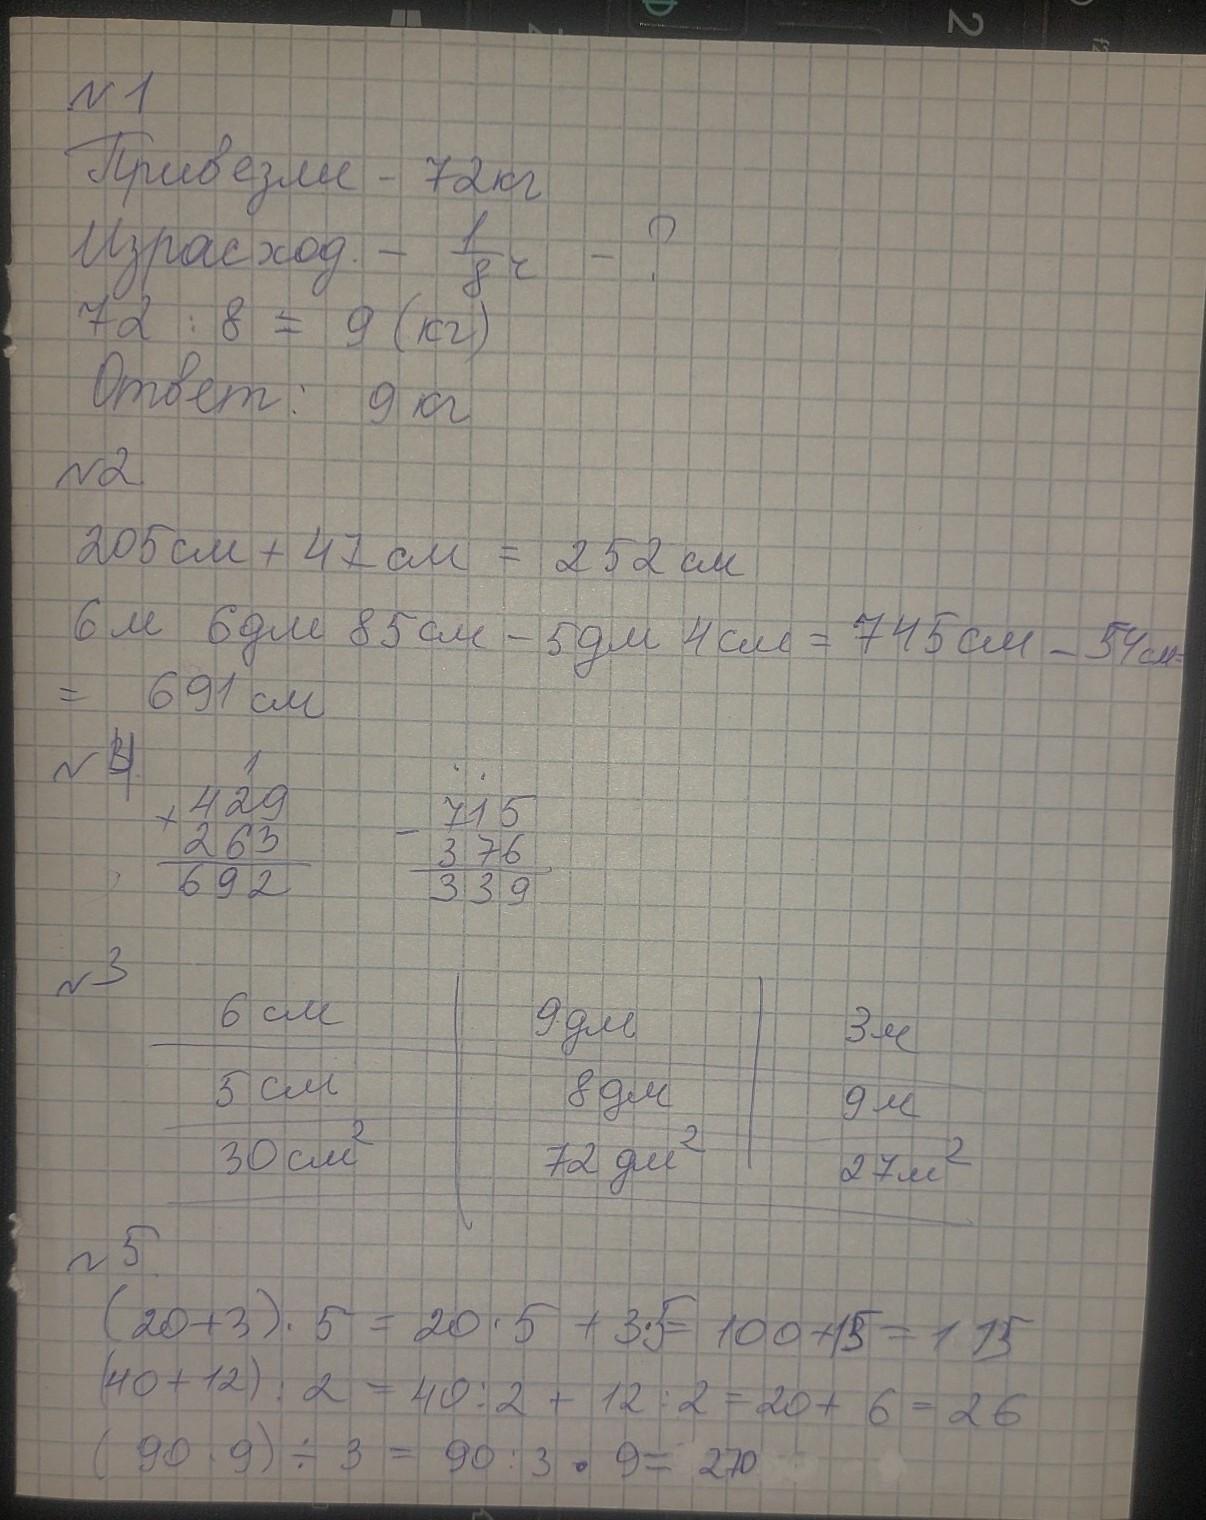 №1
Привезли - 72кг
Израсход. - 1/8 ч - ?
72 : 8 = 9 (кг)
Ответ: 9 кг
№2
205см + 47 см = 252 см
6м 6дм 85см - 5дм 4см = 745см - 54см=
= 691 см
№4
1
+ 429
263
692
- 715
376
339
№3
6 см 9дм 3м
5 см 8дм 9м
30см² 72 дм² 27м²
№5.
(20+3)·5 = 20·5 + 3·5= 100+15=115
(40+12):2 = 40:2 + 12:2=20+ 6 = 26
(90·9) ÷ 3 = 90:3·9= 270